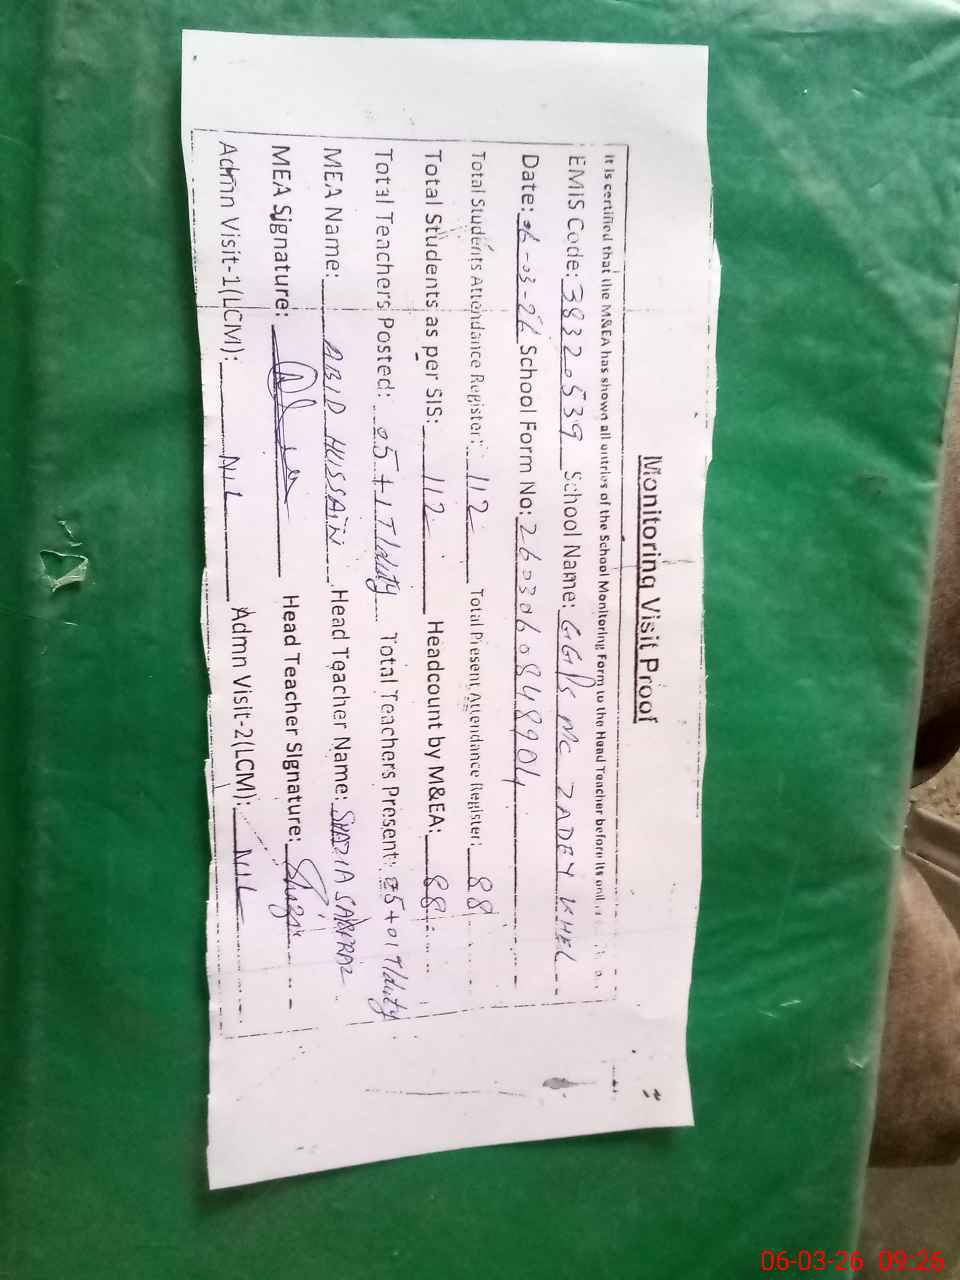 Monitoring Visit Proof
It is certified that the M&EA has shown all entries of the School Monitoring Form to the Head Teacher before its
EMIS Code: 38320539 School Name: GGPS MC ZADEY KHEL
Date: 06-03-26 School Form No: 2603060848904
Total Students Attendance Register: 112 Total Present Attendance Register: 88
Total Students as per SIS: 112 Headcount by M&EA: 88
Total Teachers Posted: 05+1 T/duty Total Teachers Present: 05+01 T/duty
MEA Name: ABID HUSSAIN Head Teacher Name: SHAZIA SARFRAZ
MEA Signature: Head Teacher Signature: Shazia
Admn Visit-1(LCM): NIL Admn Visit-2(LCM): NIL
06-03-26 09:26